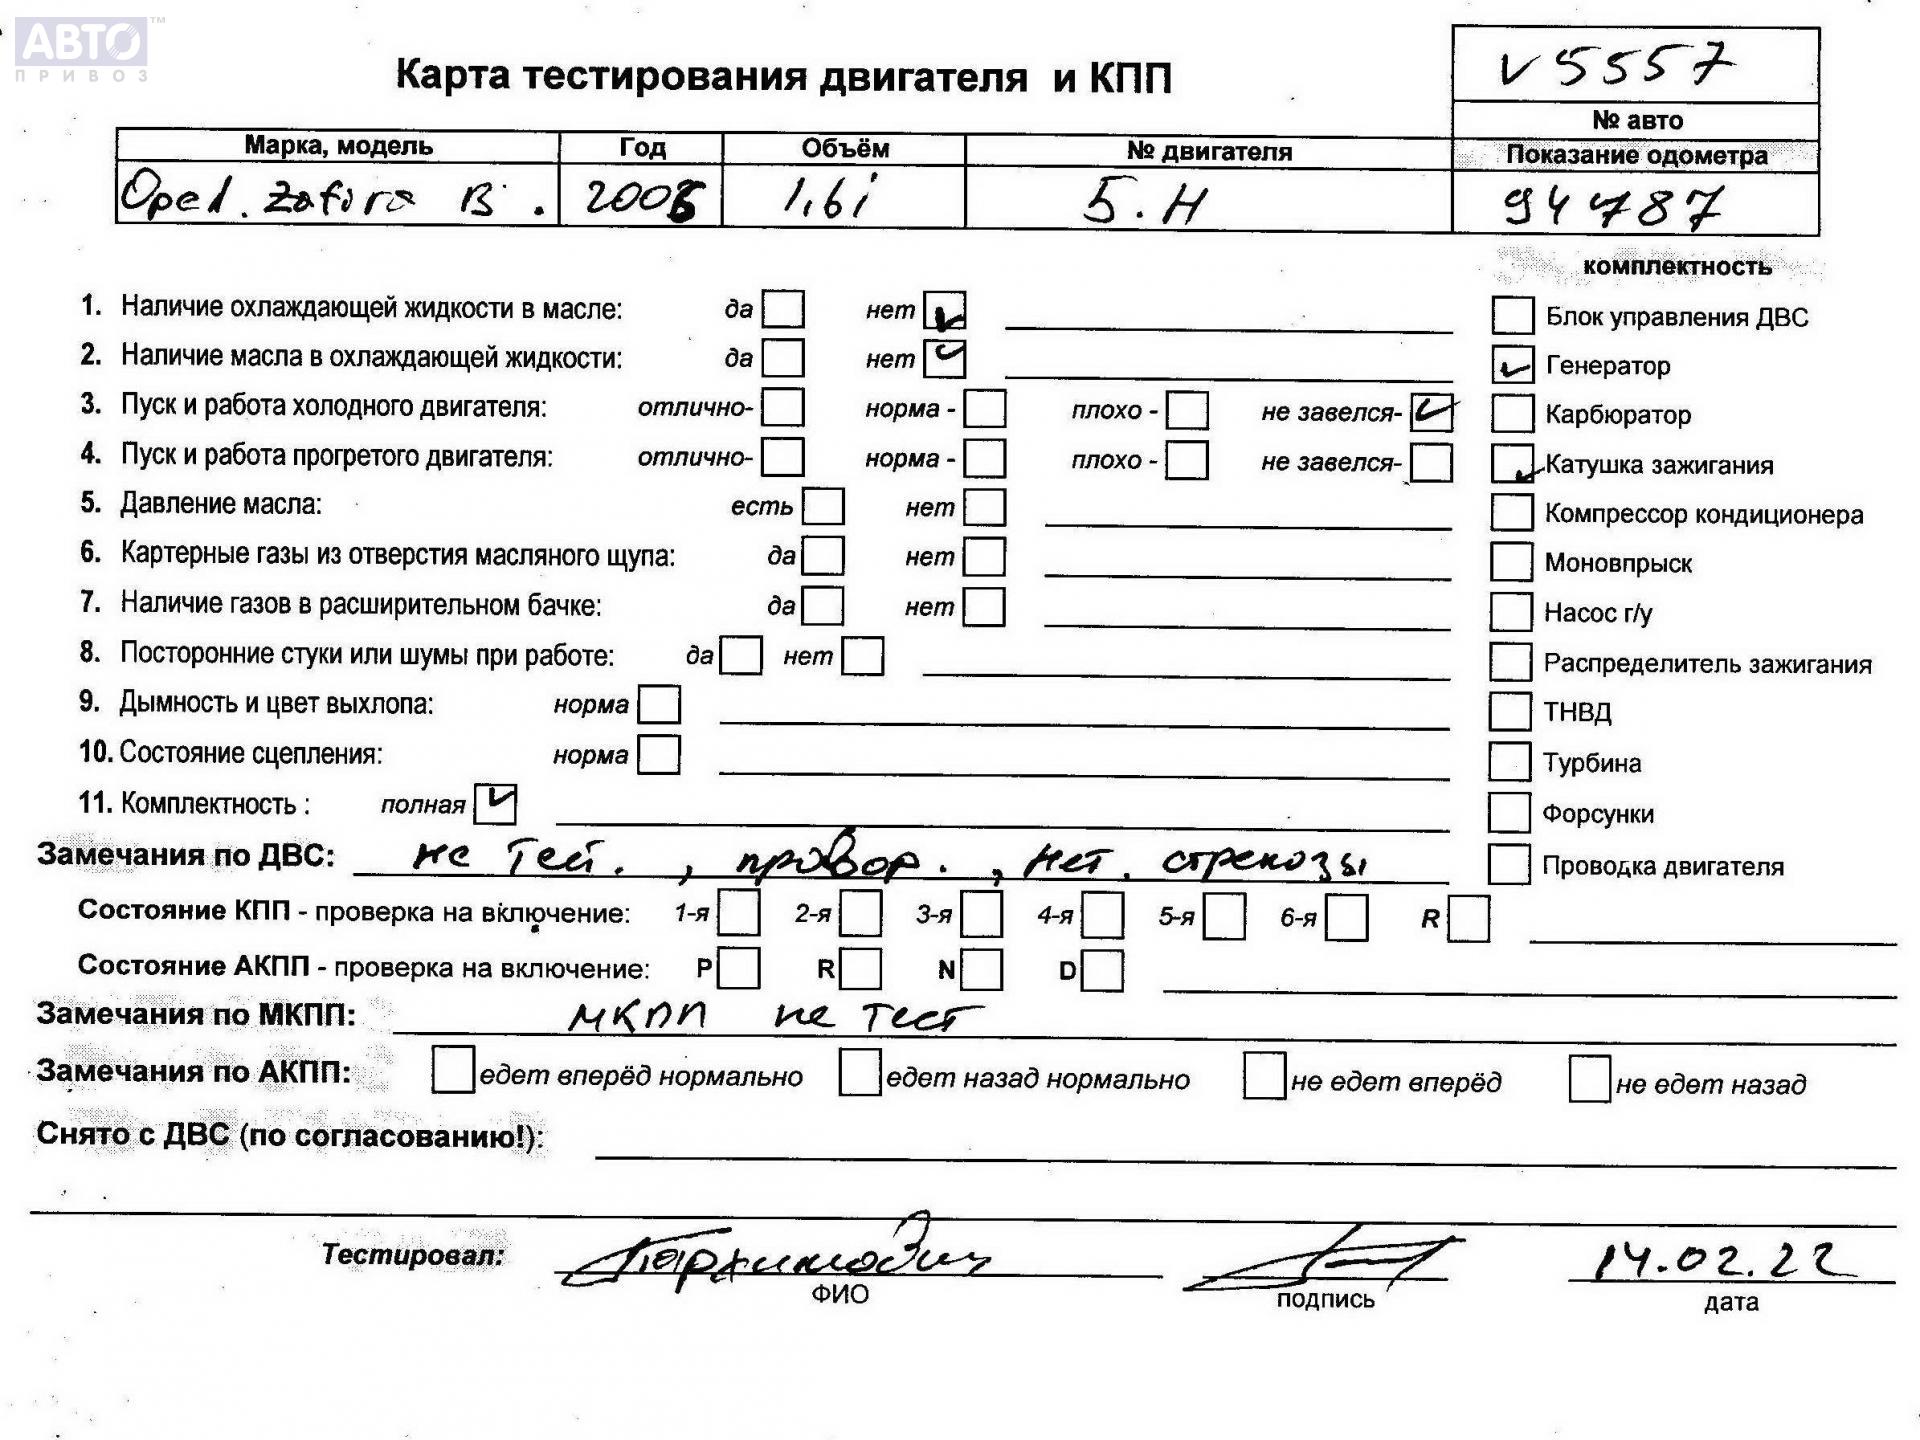 АВТО™
ПРИВОЗ
Карта тестирования двигателя и КПП
v5557
№ авто
Марка, модель Год Объём № двигателя Показание одометра
Opel. Zafira B. 2006 1,6i Б.Н 94787
комплектность
1. Наличие охлаждающей жидкости в масле: да нет Блок управления ДВС
2. Наличие масла в охлаждающей жидкости: да нет Генератор
3. Пуск и работа холодного двигателя: отлично- норма - плохо - не завелся- Карбюратор
4. Пуск и работа прогретого двигателя: отлично- норма - плохо - не завелся- Катушка зажигания
5. Давление масла: есть нет Компрессор кондиционера
6. Картерные газы из отверстия масляного щупа: да нет Моновпрыск
7. Наличие газов в расширительном бачке: да нет Насос г/у
8. Посторонние стуки или шумы при работе: да нет Распределитель зажигания
9. Дымность и цвет выхлопа: норма ТНВД
10. Состояние сцепления: норма Турбина
11. Комплектность : полная Форсунки
Замечания по ДВС: не тест. , провор. , нет. стрекозы Проводка двигателя
Состояние КПП - проверка на включение: 1-я 2-я 3-я 4-я 5-я 6-я R
Состояние АКПП - проверка на включение: P R N D
Замечания по МКПП: МКПП не тест
Замечания по АКПП: едет вперёд нормально едет назад нормально не едет вперёд не едет назад
Снято с ДВС (по согласованию!):
Тестировал: Пархимович 14.02.22
ФИО подпись дата